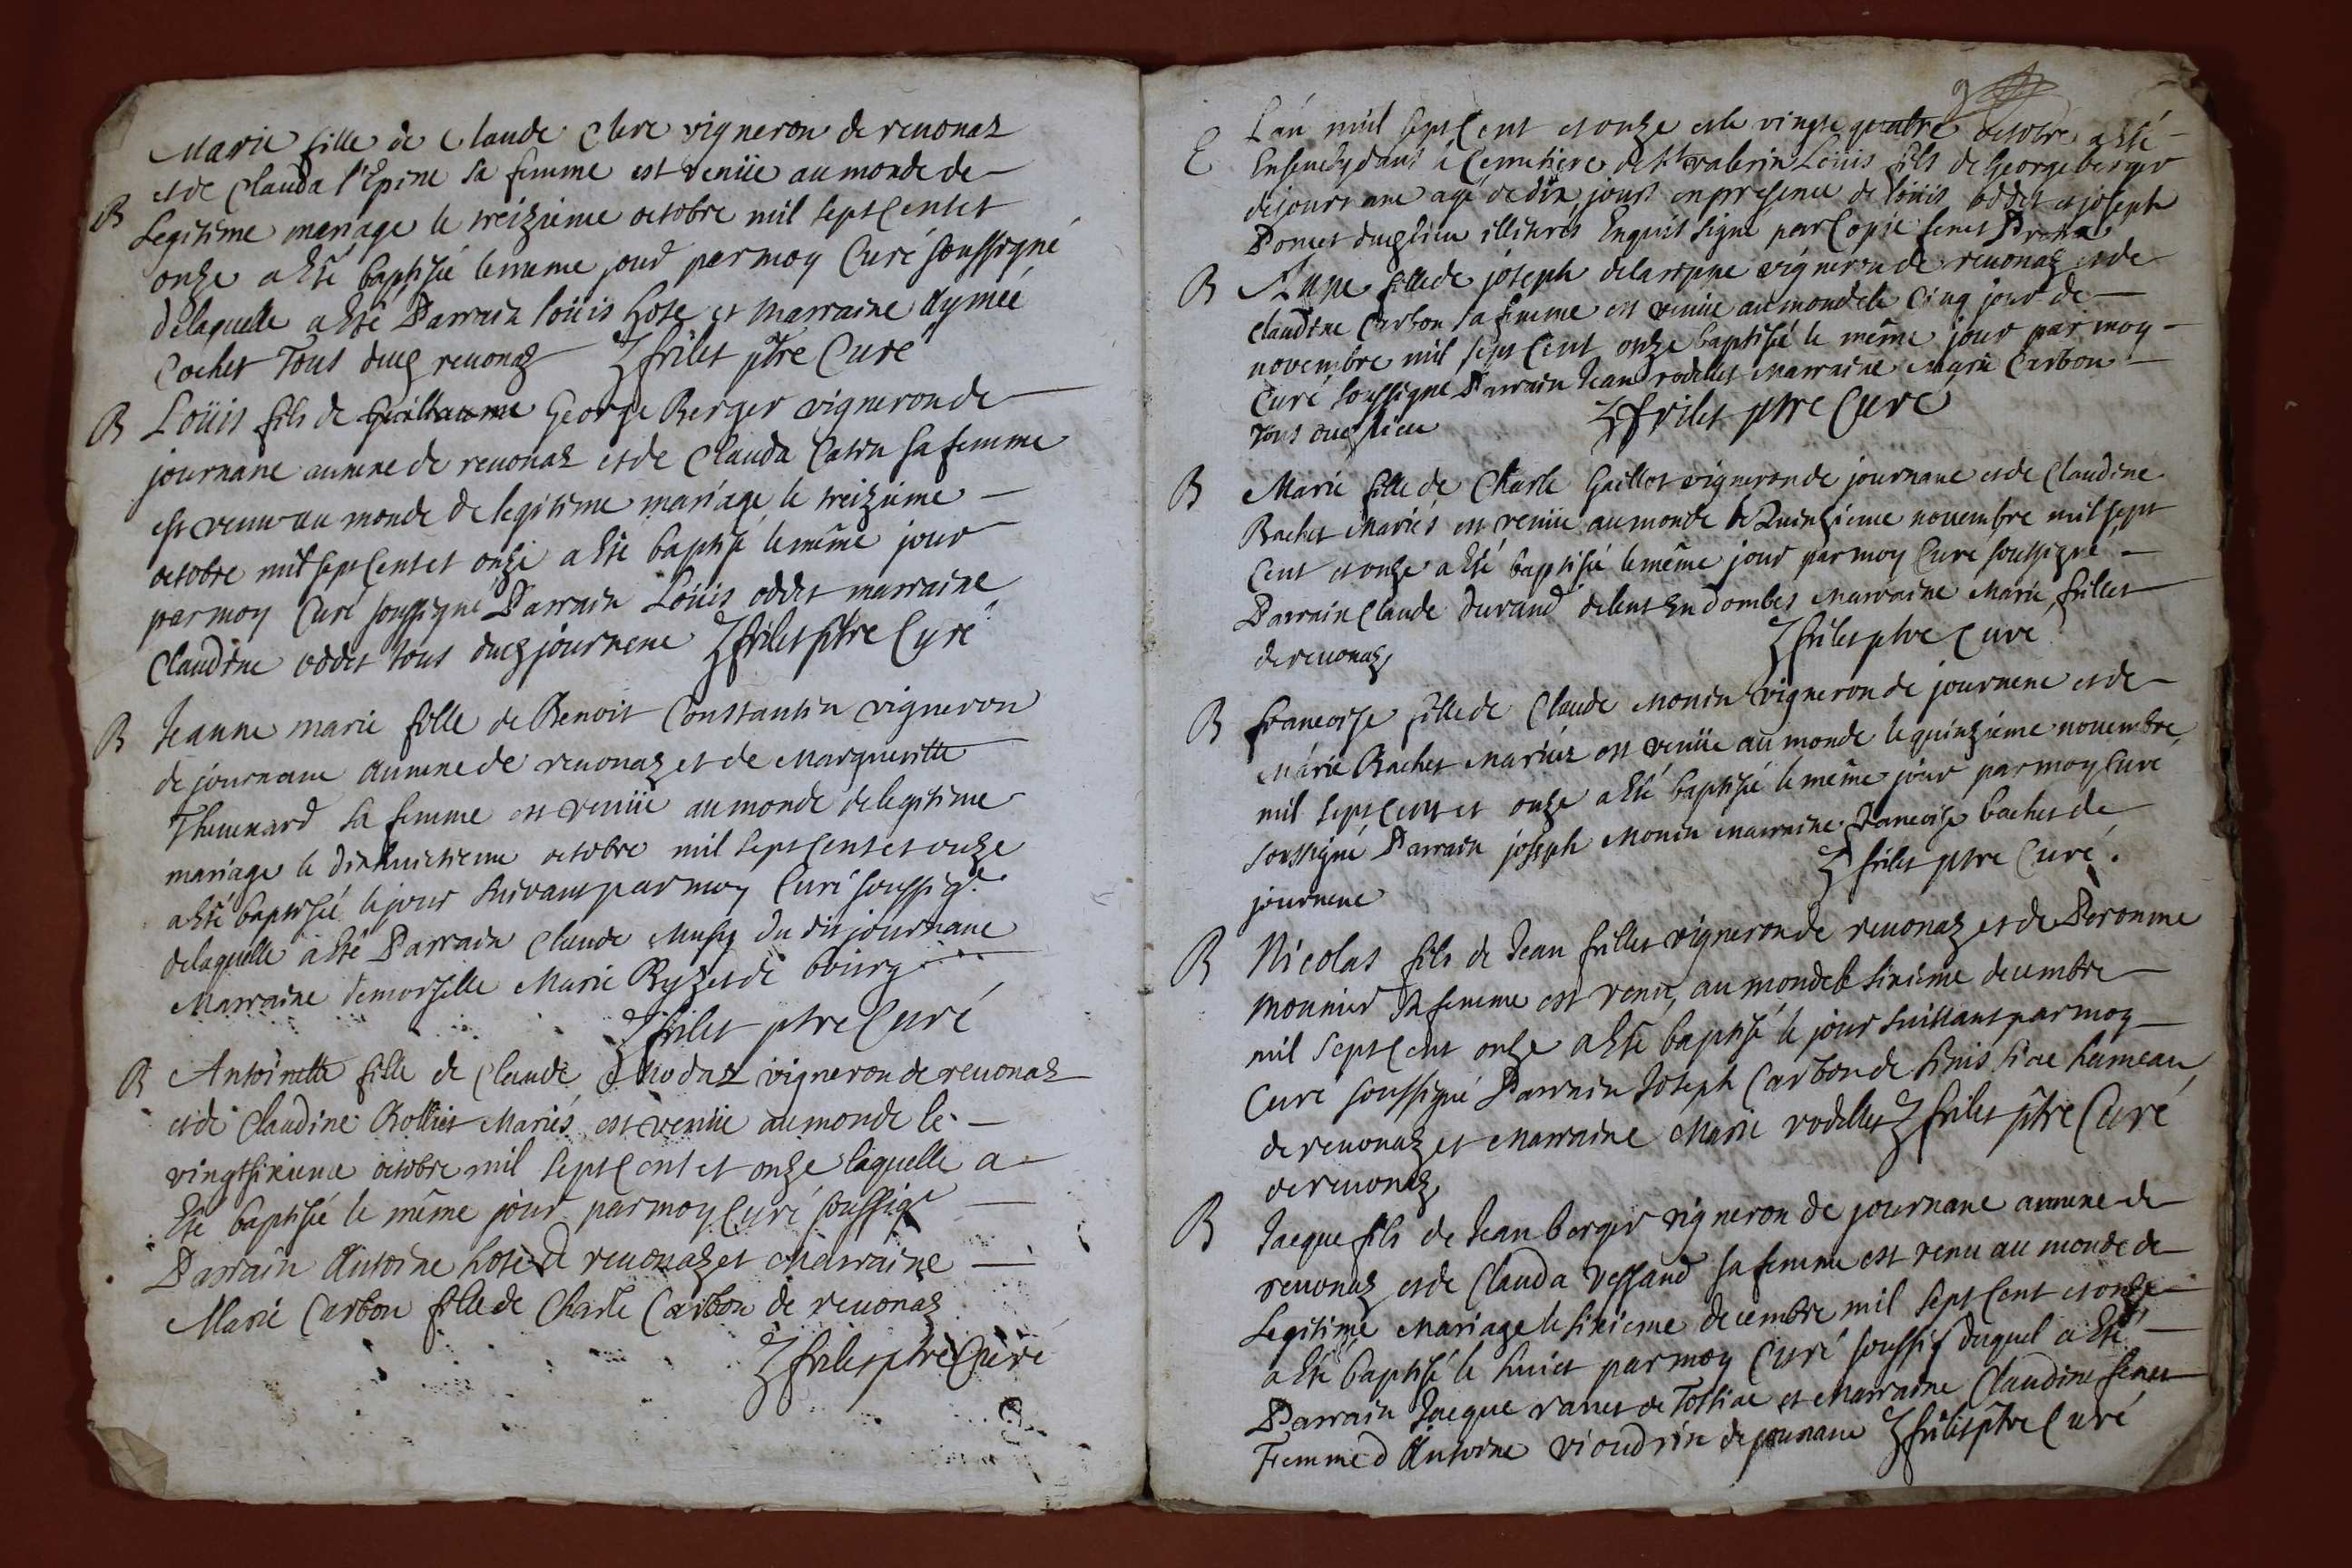 Marie fille de Claude Clere vigneron de reuonas
et de Clauda l'Epine sa femme est venüe au monde de
B Legitime mariage le treizieme octobre mil sept Cent et
onze a Esté baptisée le meme jour par moy Curé soussigné
de laquelle a Esté Parrain loüis hote et marraine Aymeé
Cochet Tous duᵭ reuonas frilet ptre Curé
B Loüis fils de Guillaume George Berger vigneron de
journane annexe de reuonas et de Clauda sa femme
est venu au monde de legitime mariage le treizieme
octobre mil sept Cent et onze a Esté baptisé le même jour
par moy Curé soussigné Parrain Loüis oddet marraine
Claudine oddet tous duᵭ journene frilet ptre Curé
B Jeanne marie fille de Benoit Constantin vigneron
de journane annexe de reuonas et de Margueritte
Theuenard sa femme est venüe au monde de legitime
mariage le dixhuictieme octobre mil sept Cent et onze
a Esté baptisée le jour suivant par moy Curé soussigé
de laquelle a Esté Parrain Claude Musy du dit journane
Marraine demoiselle Marie de bourg
frilet ptre Curé
B Antoinette fille de Claude vigneron de reuonas
et de Claudine Rollet Mariés est venüe au monde le
vingtsixieme octobre mil sept Cent et onze laquelle a
Esté baptisée le même jour par moy Curé soussigé
Parrain Antoine hote de reuonas et Marraine
Marie Carbon fille de Charle Carbon de reuonas
frilet ptre Curé
9
L'an mil sept Cent et onze et le vingt quatre octobre a esté
E Enseuely dans le Cemetiere de St valerin Loüis fils de George berger
de journane agé de dix jours en presence de loüis oddet et joseph
Poncet duᵭ lieu illiterés Enquis signé par Copie
B Anne fille de joseph vigneron de reuonas et de
Claudine Carbon sa femme est venüe au monde le Cinq jour de
novembre mil sept Cent onze baptisée le même jour par moy
Curé soussigné Parrain Jean rodillet Marraine Marie Carbon
Tous duᵭ lieu frilet ptre Curé
B Marie fille de Charle Gaillot vigneron de journane et de Claudine
Bachet Mariés est venüe au monde le Quinzieme nouembre mil sept
Cent et onze a Esté baptisée le même jour par moy Curé soussigné
Parrain Claude durand de lent En dombes Marraine Marie frillet
de reuonas frilet ptre Curé
B francoise fille de Claude Monin vigneron de journene et de
Marie Bachet Mariés est venüe au monde le quinzieme nouembre
mil sept Cent et onze a Esté baptisée le même jour par moy Curé
soussigné Parrain joseph Monin Marraine francoise bachet de
journene frilet ptre Curé.
B Nicolas fils de Jean frillet vigneron de reuonas et de Peronne
monnier sa femme est venu au monde le sixieme decembre
mil sept Cent onze a Esté baptisé le jour suiuant par moy
Curé soussigné Parrain Joseph Carbon de hameau
de reuonas et Marraine Marie rodillet frilet ptre Curé
de reuonas
B Jaeque fils de Jean berger vigneron de journane annexe de
reuonas et de Clauda Vessaud sa femme est venu au monde de
Legitime Mariage le sixieme decembre mil sept Cent et onze
a Esté baptisé le huict par moy Curé soussig duquel a Esté
Parrain Jaeque de Tossiac et Marraine Claudine
Femme d Antoine vioudrin de journane frilet ptre Curé